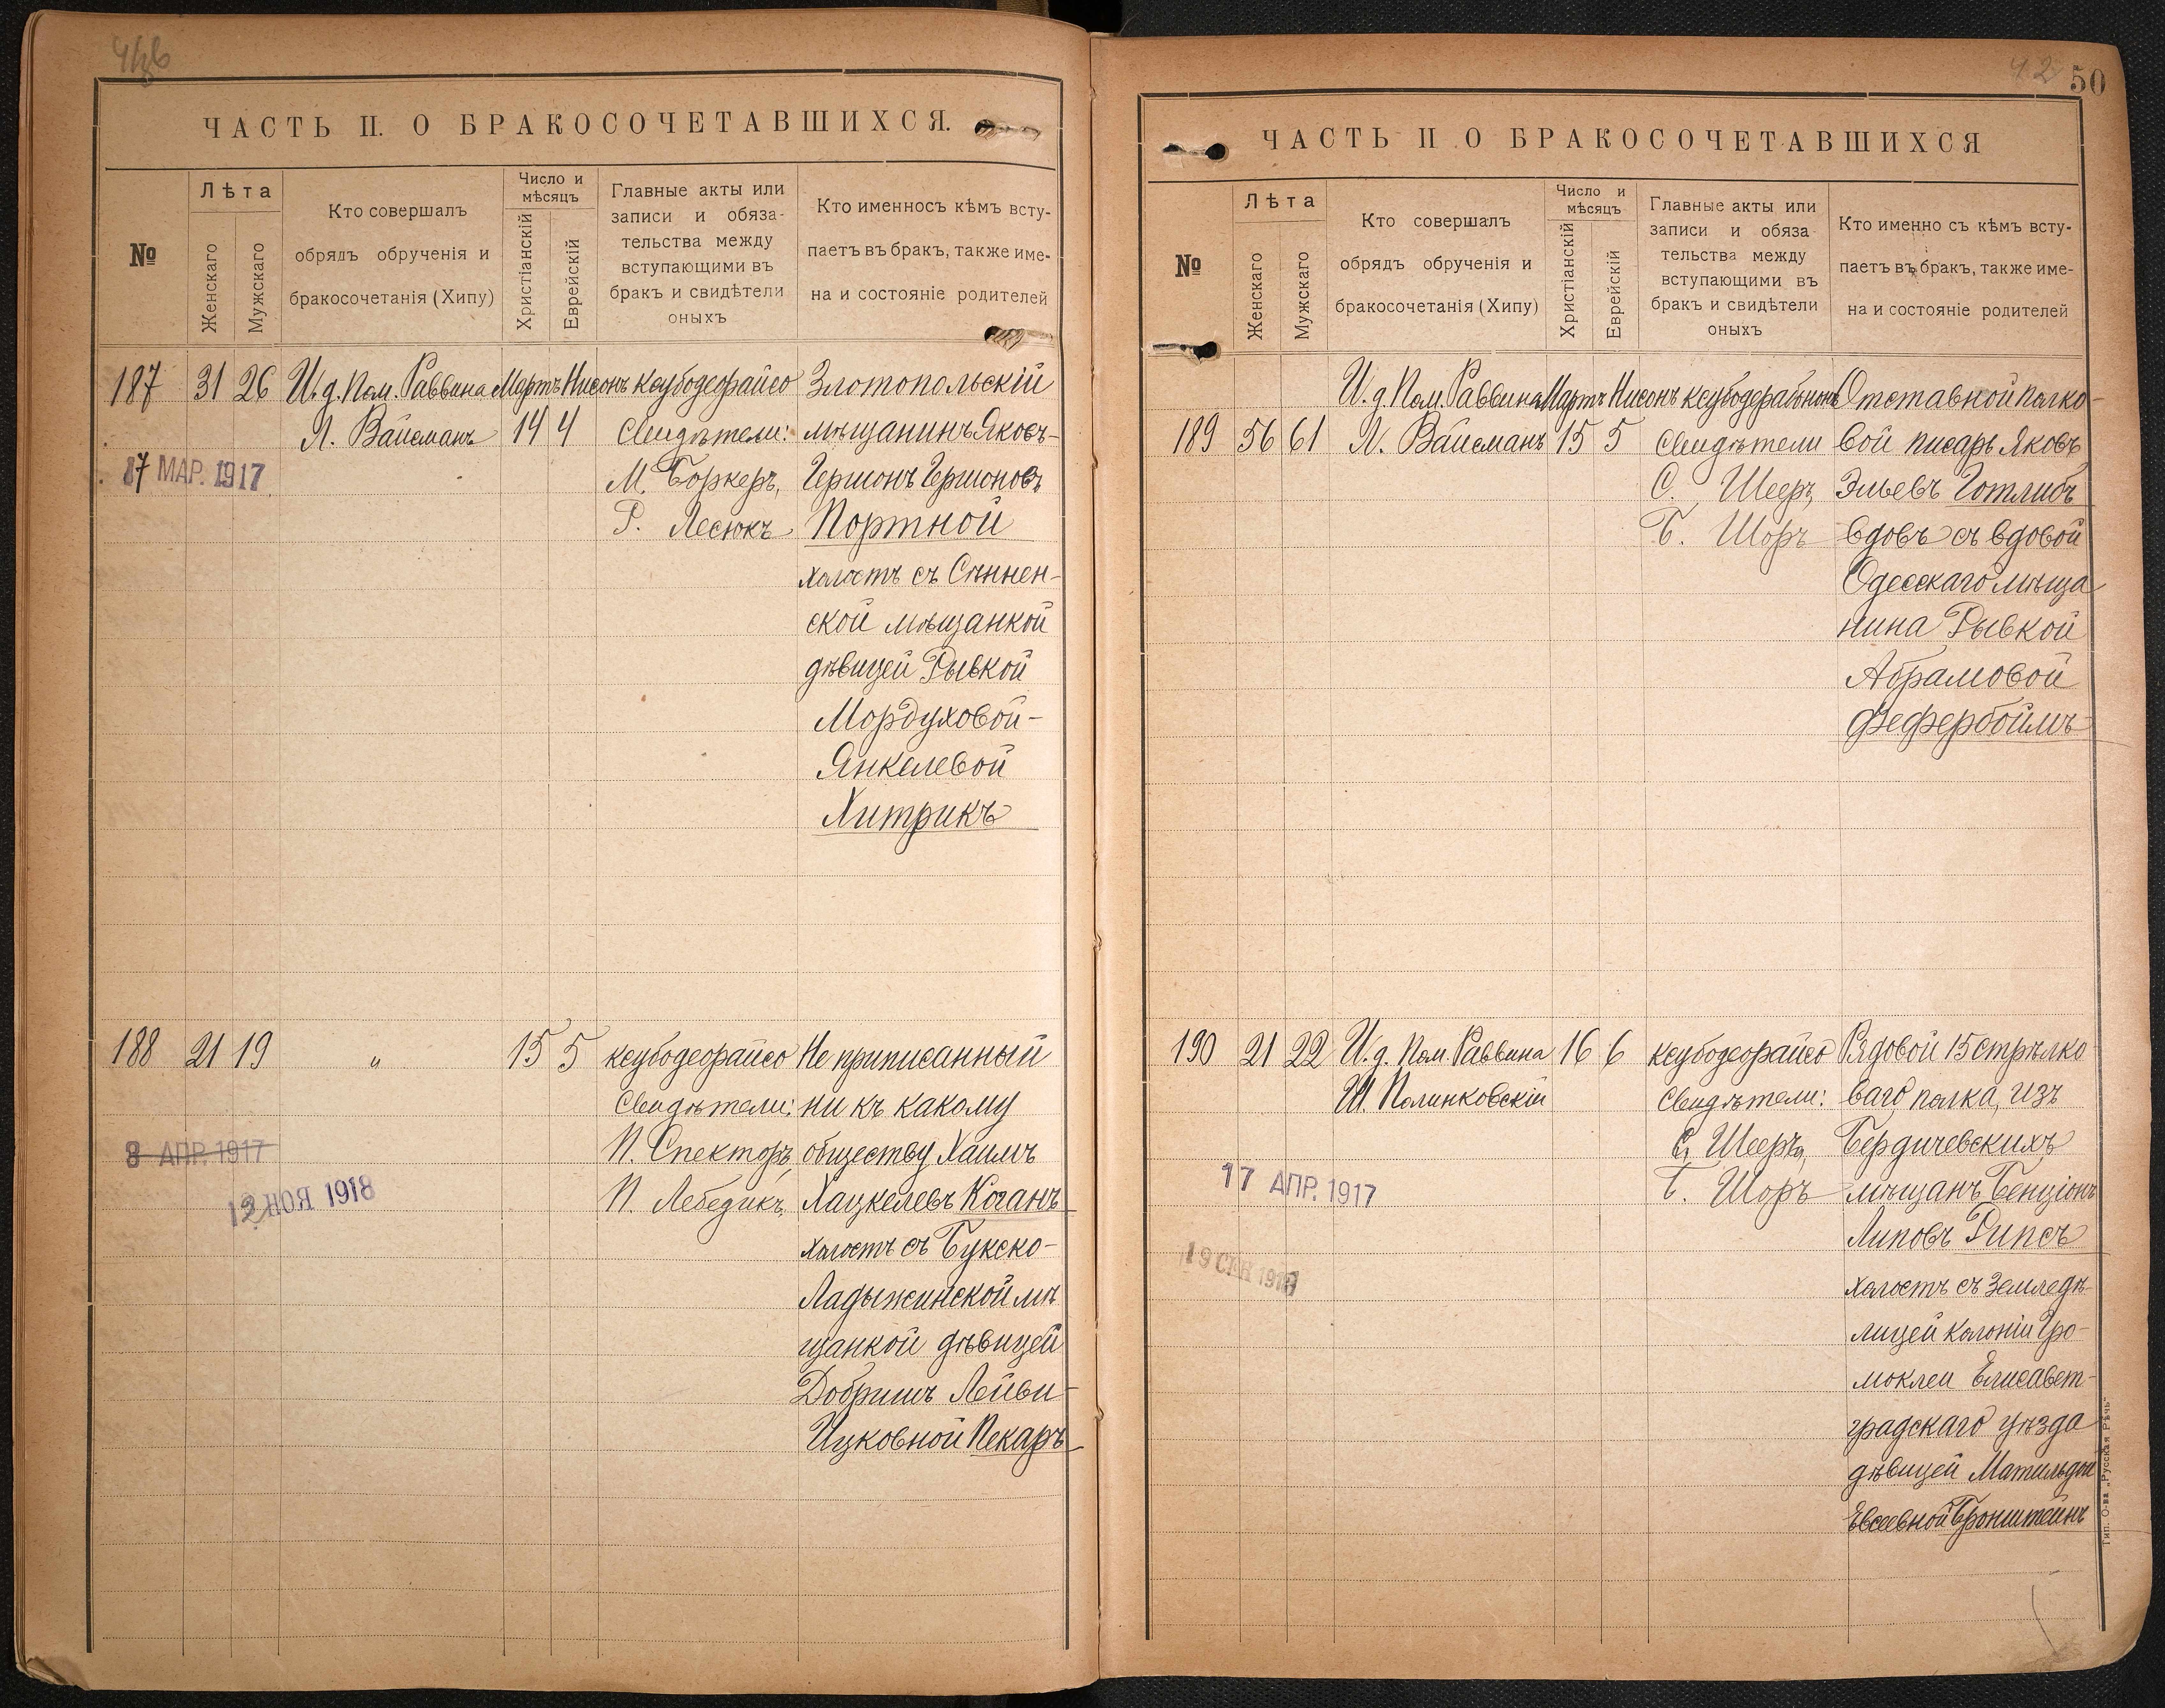 ЧАСТЬ II. О БРАКОСОЧЕТАВШИХСЯ.
№
Лѣта
Женскаго
Мужскаго
Кто совершалъ
обрядъ обрученія и
бракосочетанія (Хипу)
Число и
мѣсяцъ
Христіанскій
Еврейскій
Главные акты или
записи и обяза-
тельства между
вступающими въ
бракъ и свидѣтели
оныхъ
Кто именносъ кѣмъ всту-
паетъ въ бракъ, также име-
на и состояніе родителей
187 31 26 И.д. Пом. Раввина Мартъ Нисонъ ксубодеорайсо Злотопольскій
Л. Вайсманъ 14 4 Свидѣтели: мѣщанинъ Яковъ-
17 МАР. 1917
М. Боркеръ, Гершонъ Гершоновъ
Р. Лесюкъ Портной
холостъ съ Сѣннен-
ской мѣщанкой
дѣвицей Рывкой
Мордуховой-
Янкелевой
Хитрикъ
188 21 19 " 15 5 ксубодеорайсо Не приписанный
Свидѣтели: ни къ какому
8 АПР. 1917
П. Спекторъ, обществу Хаимъ
13 НОЯ 1918
П. Лебедикъ, Хацкелевъ Коганъ
холостъ съ Букско-
Ладыжинской мѣ
щанкой дѣвицей
Добришъ Лейви-
Ицковной Пекаръ
50
ЧАСТЬ II О БРАКОСОЧЕТАВШИХСЯ
№
Лѣта
Женскаго
Мужскаго
Кто совершалъ
обрядъ обрученія и
бракосочетанія (Хипу)
Число и
мѣсяцъ
Христіанскій
Еврейскій
Главные акты или
записи и обяза
тельства между
вступающими въ
бракъ и свидѣтели
оныхъ
Кто именно съ кѣмъ всту-
паетъ въ бракъ, также име-
на и состояніе родителей
И.д. Пом. Раввина Мартъ Нисонъ Отставной полко-
189 56 61 Л. Вайсманъ 15 5 Свидѣтели вой писарь Яковъ
С. Шееръ, Эльевъ Готлибъ
Б. Шоръ вдовъ съ вдовой
Одесскаго мѣща
нина Рывкой
Абрамовой
Фефербоймъ
190 21 22 И.д. Пом. Раввина 16 6 ксубодеорайсо Рядовой 15 стрѣлко
Ш. Полинковскій Свидѣтели: ваго полка, изъ
С. Шееръ, Бердичевскихъ
17 АПР. 1917
Б. Шоръ мѣщанъ Бенціонъ
Липовъ Рипсъ
холостъ съ земледѣ-
лицей колоніи Гро-
моклеи Елисавет-
градскаго уѣзда
дѣвицей Матильдой
Евсеевной Бронштейнъ
Тип. О-ва „Русская Рѣчь"